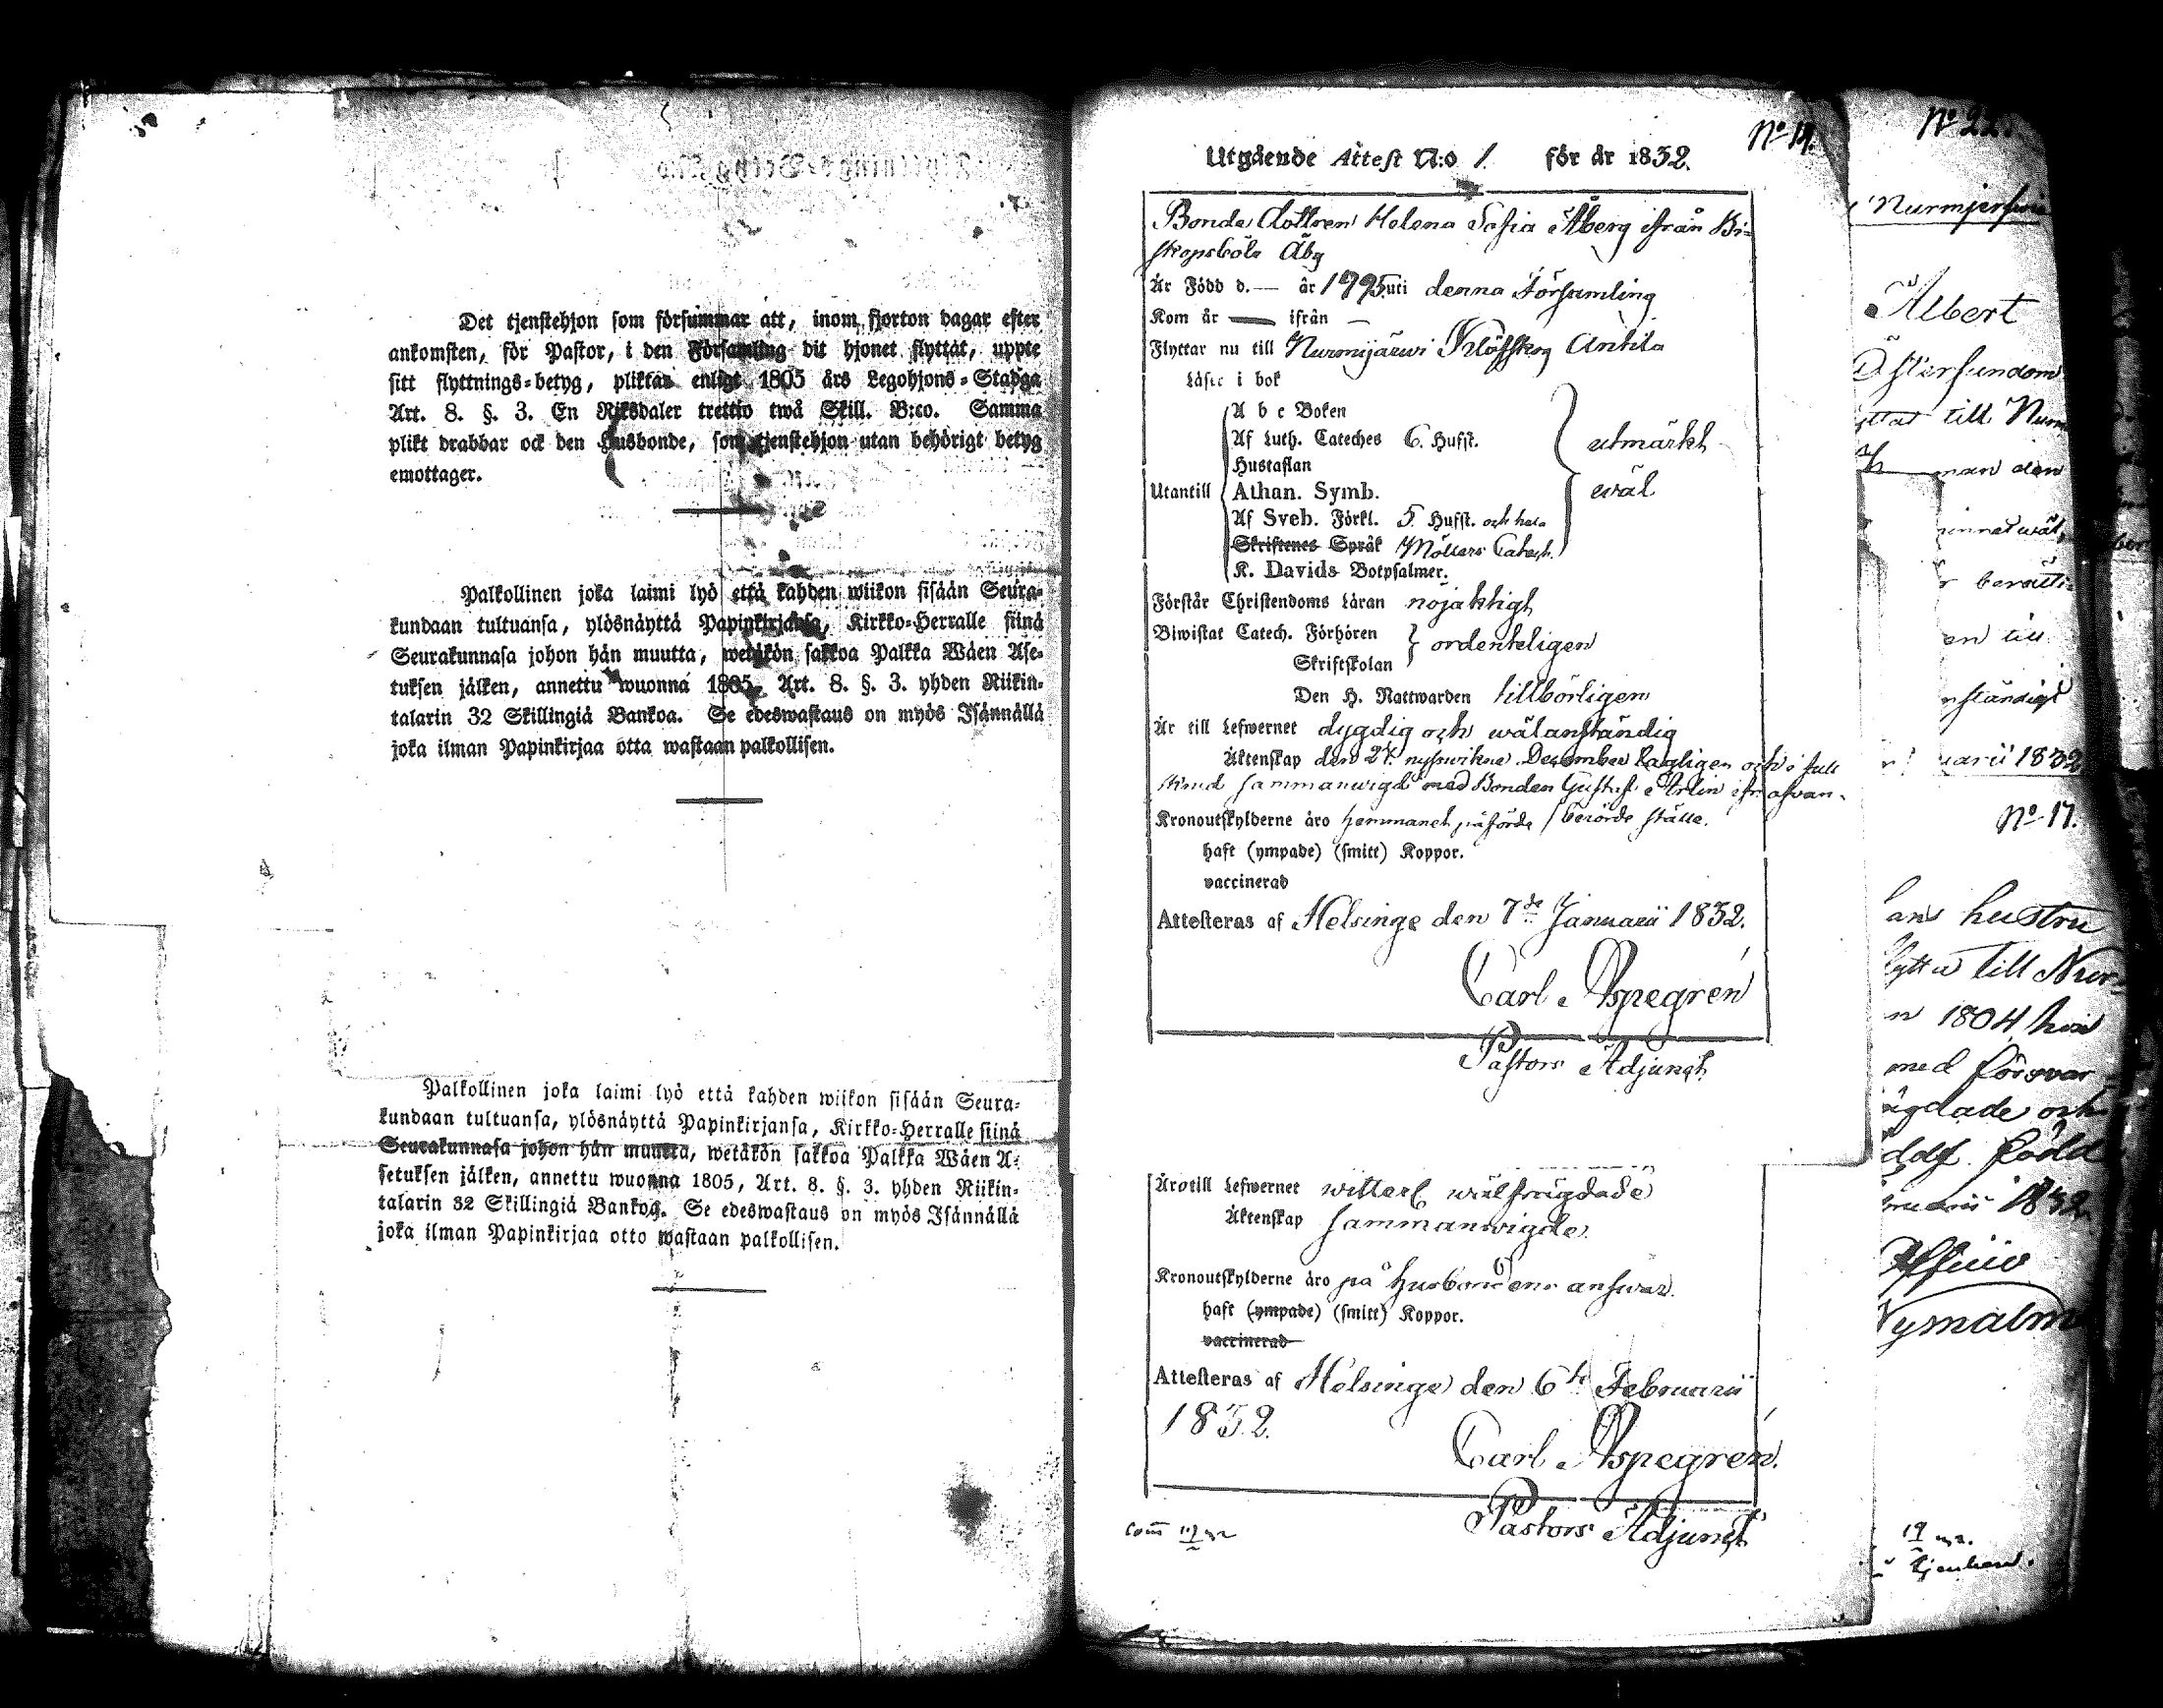 Det tjenstehjon som försummar att, inom fjorton dagar efter
ankomsten, för Pastor, i den Församling dit hjonet flyttat, uppte
sitt flyttnings-betyg, pliktar enligt 1805 års Legohjons-Stadga
Art. 8. §. 3. En Riksdaler trettio twå Skill. B:co. Samma
plikt drabbar ock den Husbonde, som tjenstehjon utan behörigt betyg
emottager.
Palkollinen joka laimi lyö että kahden wiikon sisään Seura-
kundaan tultuansa, ylösnäyttä Papinkirjansa, Kirkko-Herralle siinä
Seurakunnasa johon hän muutta, wetäkön sakkoa Palkka Wäen Ase-
tuksen jälken, annettu wuonna 1805, Art. 8. §. 3. yhden Riikin-
talarin 32 Skillingiä Bankoa. Se edeswastaus on myös Isännällä
joka ilman Papinkirjaa otta wastaan palkollisen.
Palkollinen joka laimi lyö että kahden wiikon sisään Seura-
kundaan tultuansa, ylösnäyttä Papinkirjansa, Kirkko-Herralle siinä
Seurakunnasa johon hän muutta, wetäkön sakkoa Palkka Wäen A-
setuksen jälken, annettu wuonna 1805, Art. 8. §. 3. yhden Riikin-
talarin 32 Skillingiä Bankoa. Se edeswastaus on myös Isännällä
joka ilman Papinkirjaa otto wastaan palkollisen.
No 19.
Utgående Attest N:o 1. för år 1832.
Bonde dottren Helena Sofia Åberg ifrån Bi-
skopsböle Åbg
Är Född d. — år 1795 uti denna Församling
Kom år — ifrån —
Flyttar nu till Nurmijärwi Klöfskog Antila
Läser i bok
A b c Boken
Af Luth. Cateches 6. Hufst.
Hustaflan
Utantill Athan. Symb.
Af Sveb. Förkl. 5. Hufst. och hela
Skriftenes Språk Möllers Catech.
K. Davids Botpsalmer.
utmärkt
wäl
Förstår Christendoms Läran nöjaktigt
Biwistat Catech. Förhören
Skriftskolan
ordenteligen
Den H. Nattwarden tillbörligen
Är till Lefwernet dygdig och wälanständig
Äktenskap den 27. nyswikne December lagligen och i full
sammanwigd med Bonden Gustaf
Kronoutskylderne äro hemmanet påförde berörde ställe.
haft (ympade) (smitt) Koppor.
vaccinerad
Attesteras af Helsinge den 7de Januarii 1832.
Carl Aspegrén
Pastors Adjunct.
Äro till Lefwernet witterl. wälfrägdade
Äktenskap sammanwigde.
Kronoutskylderne äro på husbondens answar.
haft (ympade) (smitt) Koppor.
vaccinerad
Attesteras af Helsinge den 6te Februarii
1832.
Carl Aspegrén.
Pastors Adjunct
No 22.
Nurmjerfwi
Albert
Östersundom
till Nurm
man den
till
1832
No 17.
hustru
till Nur-
1804
med försvar
och
född
1832.
Nymalm
19